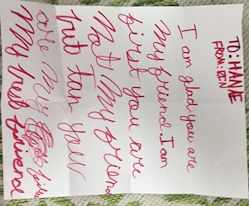 TO:
FROM:
I am glad you are
my friend. I am
first you are
Not my friend
but I an your
are my
My best friend